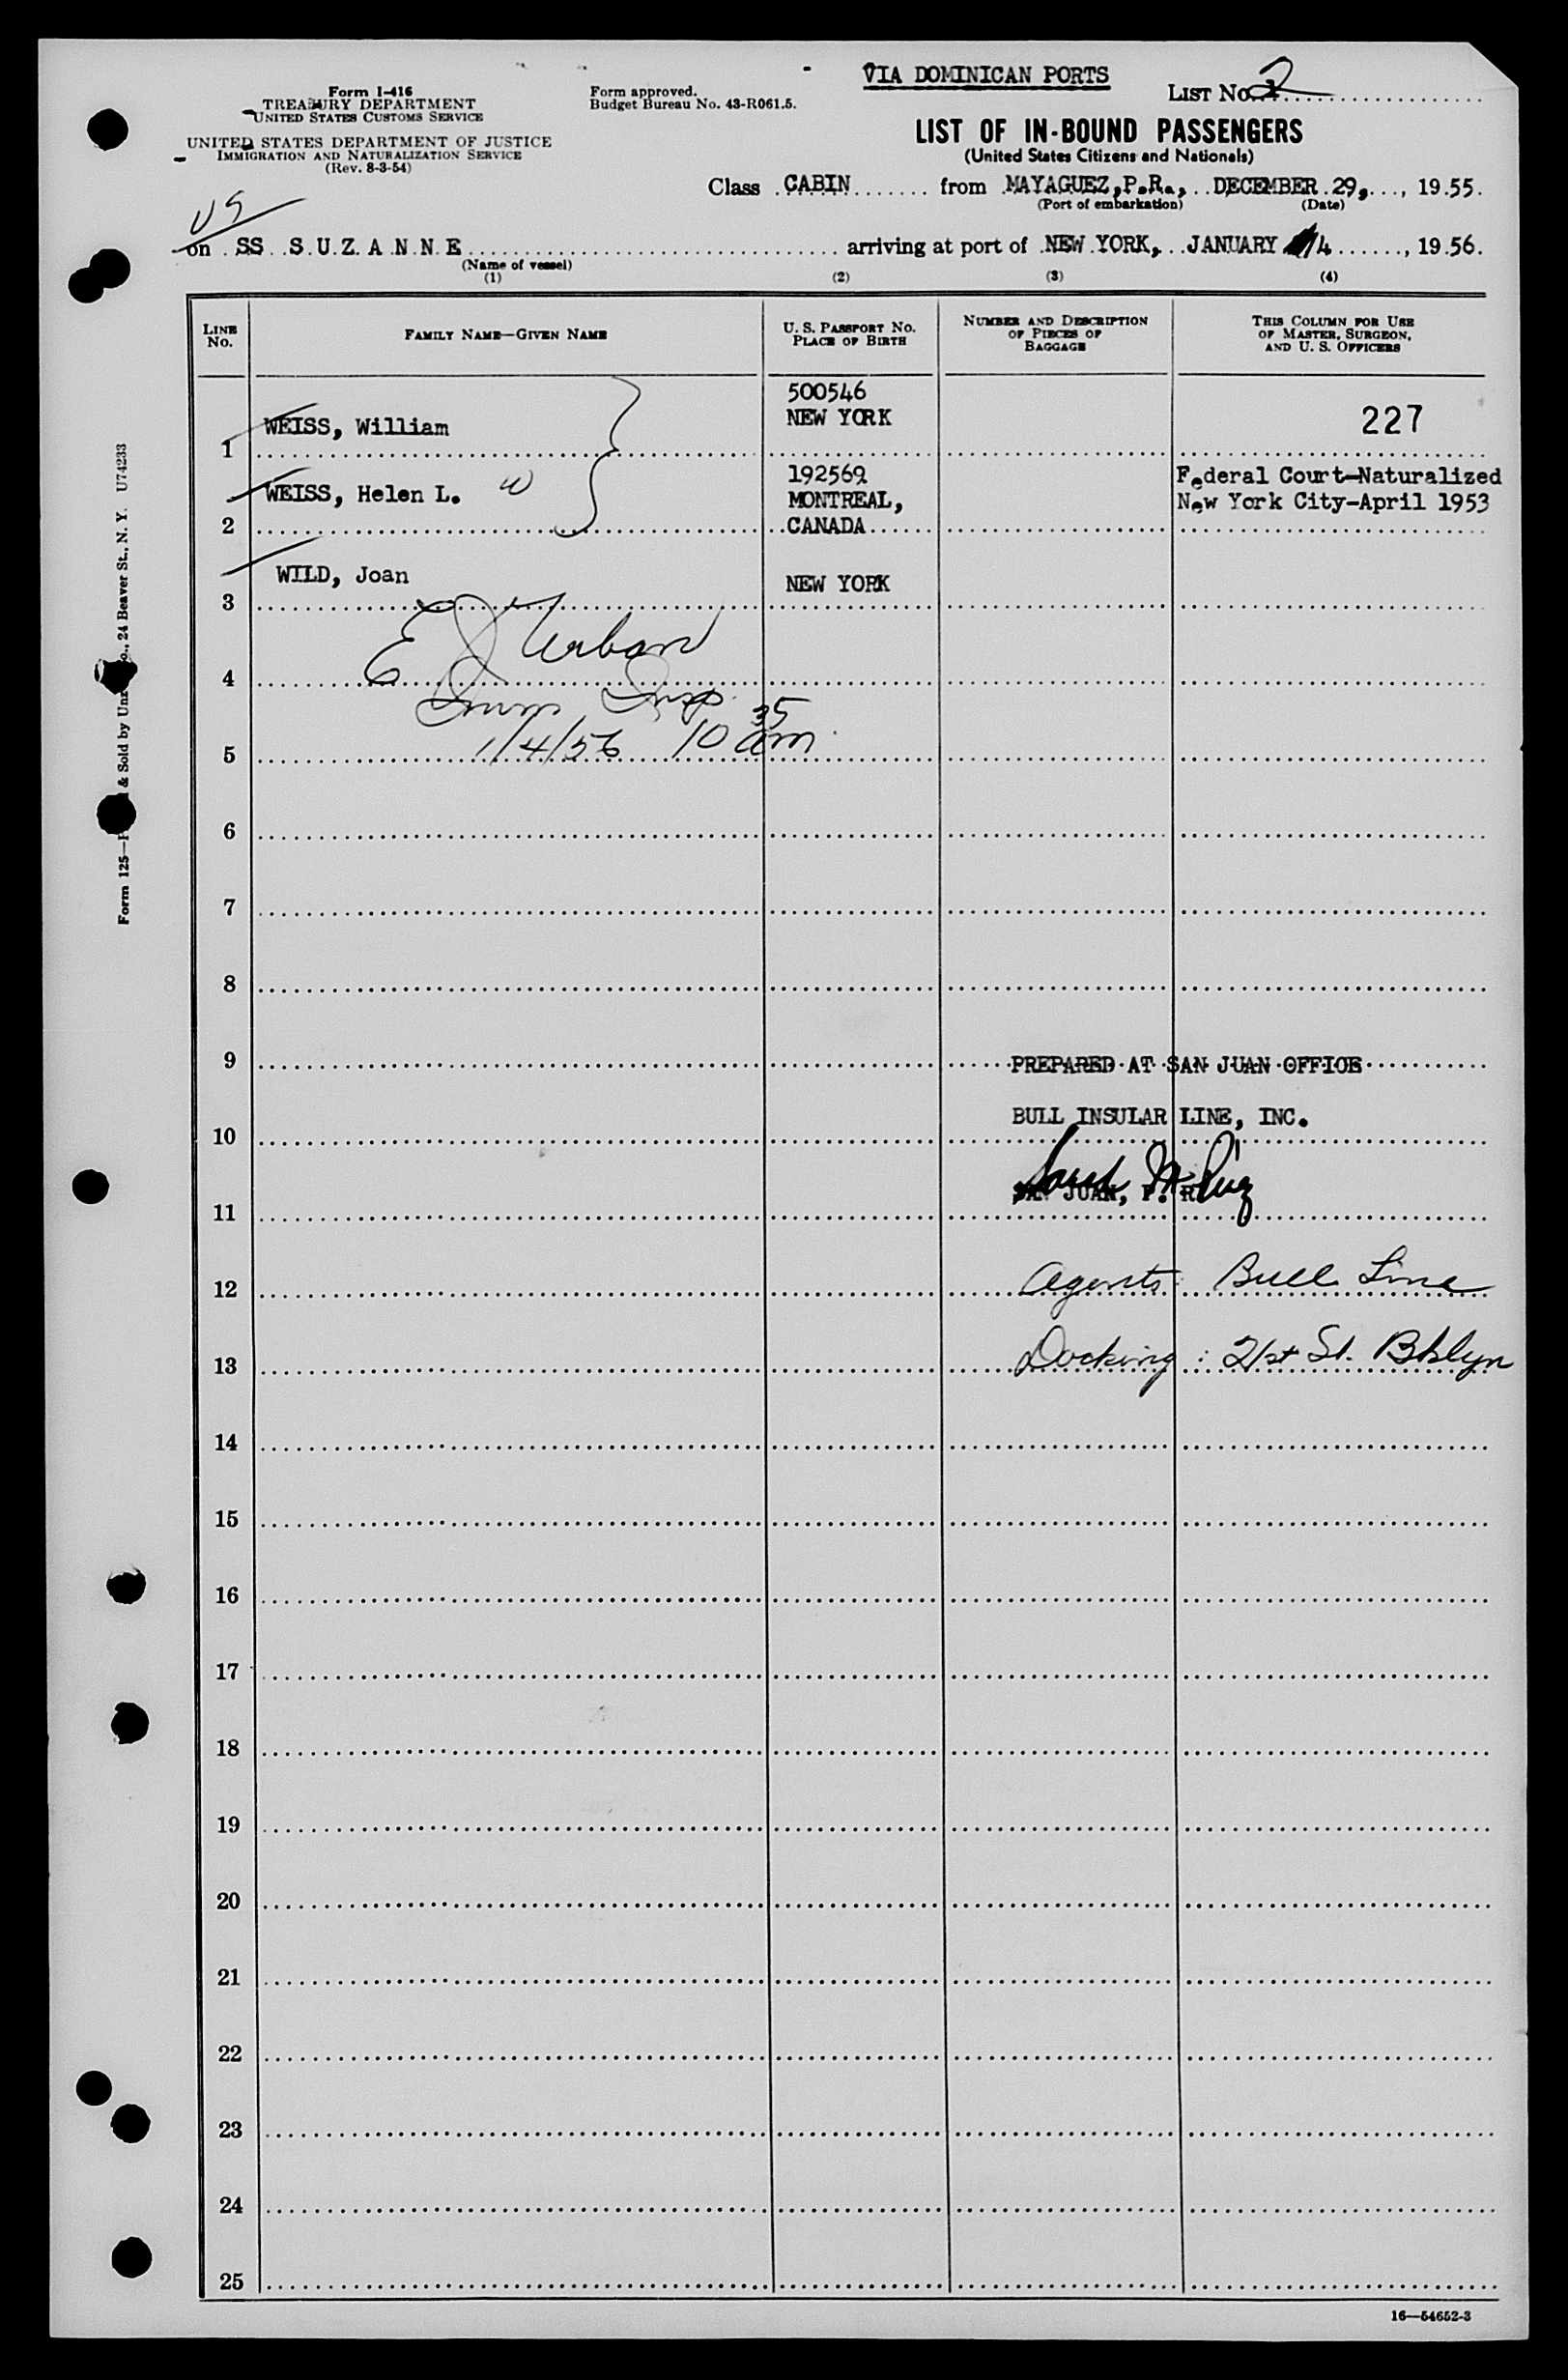 VIA DOMINICAN PORTS
Form I-416
TREASURY DEPARTMENT
UNITED STATES CUSTOMS SERVICE
UNITED STATES DEPARTMENT OF JUSTICE
IMMIGRATION AND NATURALIZATION SERVICE
(Rev. 8-3-54)
Form approved.
Budget Bureau No. 43-R061.5.
LIST No. 2
LIST OF IN-BOUND PASSENGERS
(United States Citizens and Nationals)
Class CABIN from MAYAGUEZ, P.R., DECEMBER 29, 1955.
(Port of embarkation) (Date)
US
on SS S U Z A N N E arriving at port of NEW YORK, JANUARY 4, 1956.
(Name of vessel)
(1) (2) (3) (4)
LINE No.
FAMILY NAME—GIVEN NAME
U. S. PASSPORT NO. PLACE OF BIRTH
NUMBER AND DESCRIPTION OF PIECES OF BAGGAGE
THIS COLUMN FOR USE OF MASTER, SURGEON, AND U. S. OFFICERS
500546
1 WEISS, William NEW YORK 227
192569 Federal Court-Naturalized
WEISS, Helen L. W MONTREAL, New York City-April 1953
2 CANADA
3 WILD, Joan NEW YORK
E J Urban
4
Imm Insp.
5 1/4/56 10 35 am
6
7
8
9 PREPARED AT SAN JUAN OFFICE
10 BULL INSULAR LINE, INC.
11 SAN JUAN, P. R.
12 Agents: Bull Line
13 Docking: 21st St. Bklyn
14
15
16
17
18
19
20
21
22
23
24
25
16—54652-3
& Sold by
24 Beaver St., N. Y. U74233
Form 125—